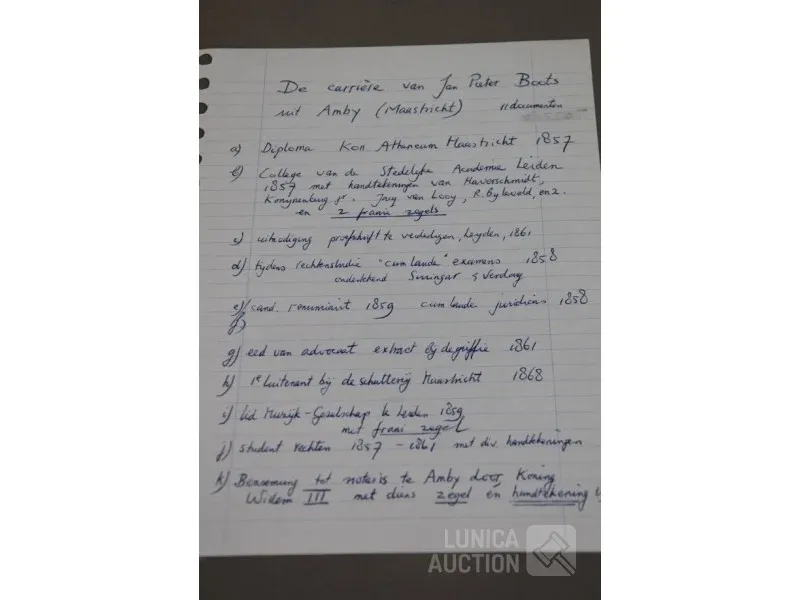 De carrière van Jan Pieter Boots
uit Amby (Maastricht) 11 documenten
a) Diploma Kon. Atheneum Maastricht 1857
b) College van de Stedelijke Academie Leiden
1857 met handtekeningen van Haverschmidt,
jr. van Looy, R. Byleveld, enz.
en 2 fraaie zegels
c) uitnodiging proefschrift te verdedigen, Leyden, 1861
d) tijdens rechtenstudie "cum laude" examens 1858
ondertekend Suringar & Verdam
e) cand. 1859 cum laude 1858
f)
g) eed van advocaat extract bij de griffie 1861
h) 1e luitenant bij de schutterij Maastricht 1868
i) lid Muzijk-Geselschap te Leiden 1859
met fraai zegel
j) student rechten 1857 - 1861 met div. handtekeningen
k) Benoeming tot notaris te Amby door Koning
Willem III met diens zegel én handtekening
LUNICA
AUCTION